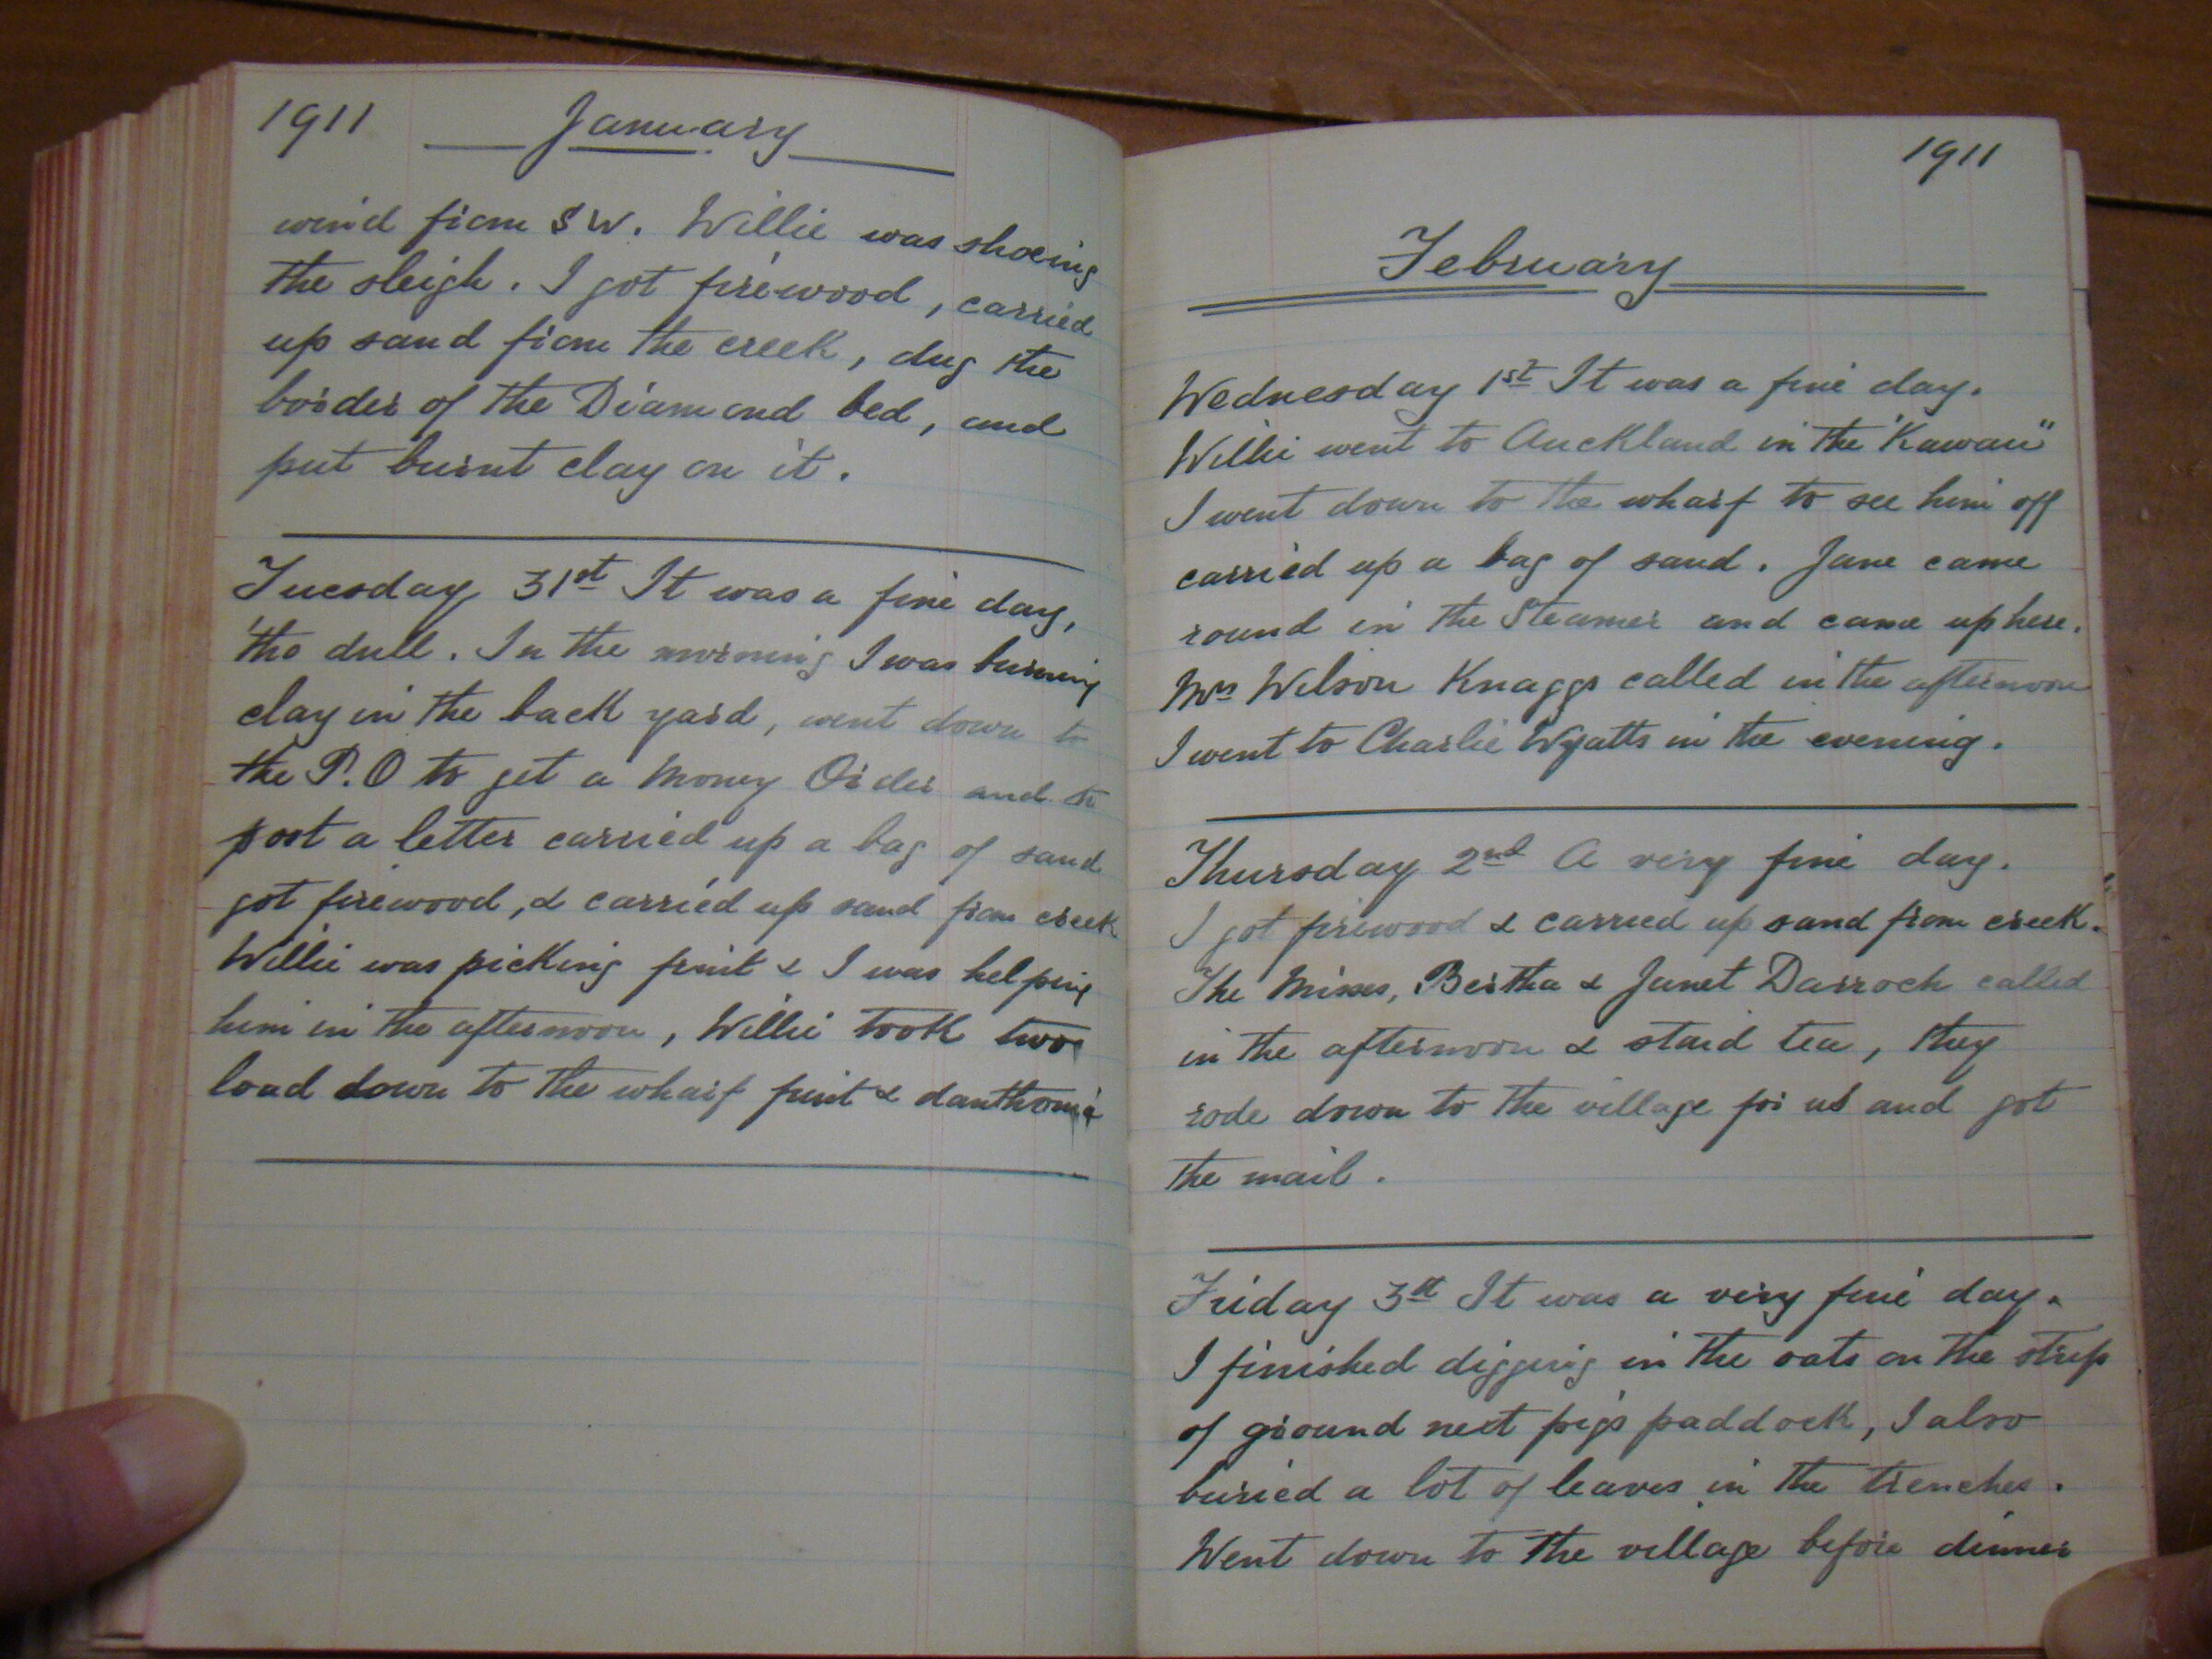 1911 January
wind from SW. Willie was shoeing
the sleigh. I got firewood, carried
up sand from the creek, dug the
border of the Diamond bed, and
put burnt clay on it.
Tuesday 31st It was a fine day,
'tho dull. In the morning I was burning
clay in the back yard, went down to
the P.O to get a Money Order and to
post a letter carried up a bag of sand
got firewood, & carried up sand from creek
Willie was picking fruit & I was helping
him in the afternoon, Willie took two
load down to the wharf fruit & danthonia
1911
February
Wednesday 1st It was a fine day.
Willie went to Auckland in the "Kawau"
I went down to the wharf to see him off
carried up a bag of sand. Jane came
round in the Steamer and came up here.
Mrs Wilson Knaggs called in the afternoon
I went to Charlie Wyatts in the evening.
Thursday 2nd A very fine day.
I got firewood & carried up sand from creek.
The Misses, Bertha & Janet Darroch called
in the afternoon & staid tea, they
rode down to the village for us and got
the mail.
Friday 3rd It was a very fine day.
I finished digging in the oats on the strip
of ground next pigs paddock, I also
buried a lot of leaves in the trenches.
Went down to the village before dinner